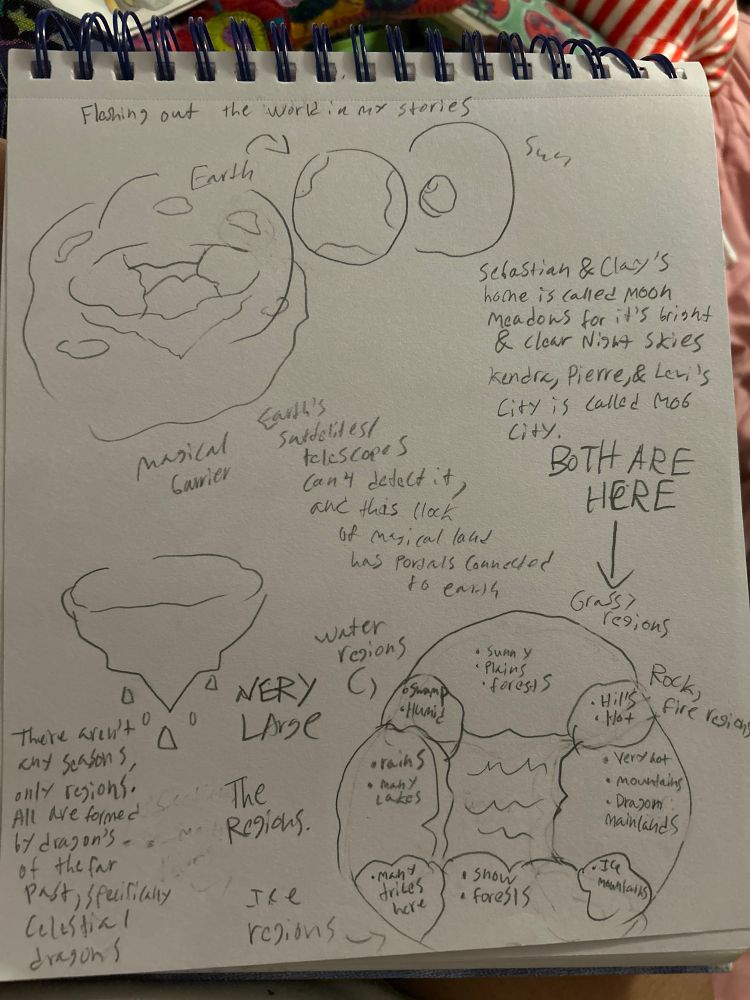 Flashing out the world in my stories
Earth
Sun
Sebastian & Clay's
home is called Moon
Meadows for it's bright
& clear Night skies
Kendra, Pierre, & Levi's
City is called MOG
City.
BOTH ARE
HERE
Magical
barrier
Earth's
telescopes
can't detect it,
and this
of magical land
has portals connected
to earth
Grassy
regions
• Sunny
• Plains
• forests
Water
regions
• Swamp
• Humid
• Hills
• Hot
Rock,
fire regions
VERY
LArge
• rains
• many
Lakes
• Very hot
• mountains
• Dragon
mainlands
There aren't
any seasons,
only regions.
All are formed
by dragon's
of the far
Past, specifically
Celestial
dragons
The
Regions.
• many
tribes
here
• Snow
• forests
• Ice
mountains
Ice
regions